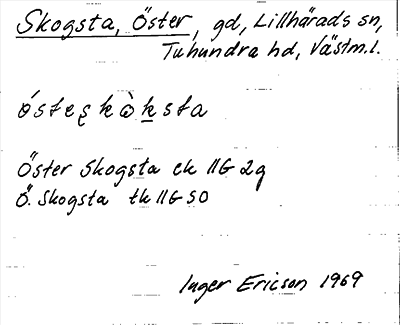 Skogsta, Öster, gd, Lillhärads sn,
Tuhundra hd, Västm.l.
ǿsteʂkòksta
Öster Skogsta ek 11G 2g
Ö. Skogsta tk 11G SO
Inger Ericson 1969